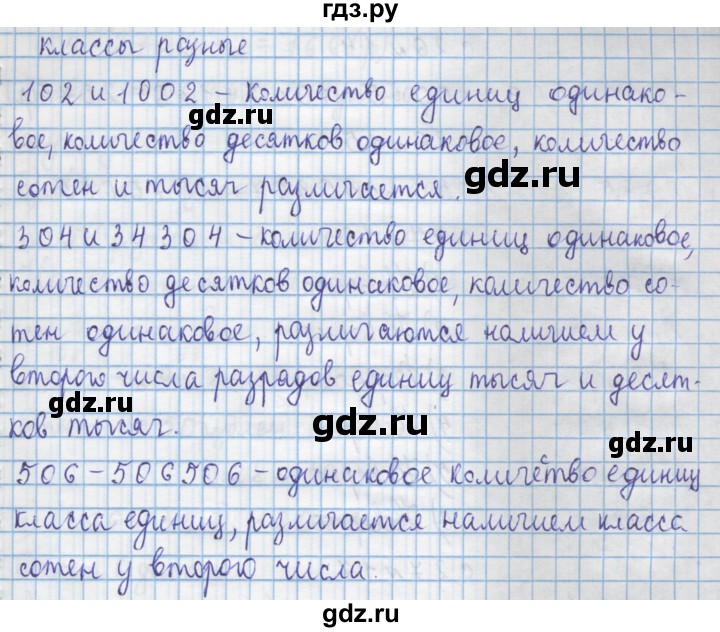 гдз.ру
классы разные
102 и 1002 – количество единиц одинако-
gdz.ru
вое, количество десятков одинаковое, количество
сотен и тысяч различается.
gdz.ru
304 и 34 304 – количество единиц одинаковое,
количество десятков одинаковое, количество со-
тен одинаковое, различаются наличием у
второго числа разрадов единиц тысяч и десят-
gdz.ru
ков тысяч.
gdz.ru
gdz.ru
506 – 506 506 – одинаковое количетво единиц
класса единиц, различается наличием класса
сотен у второго числа.
gdz.ru
gdz.ru